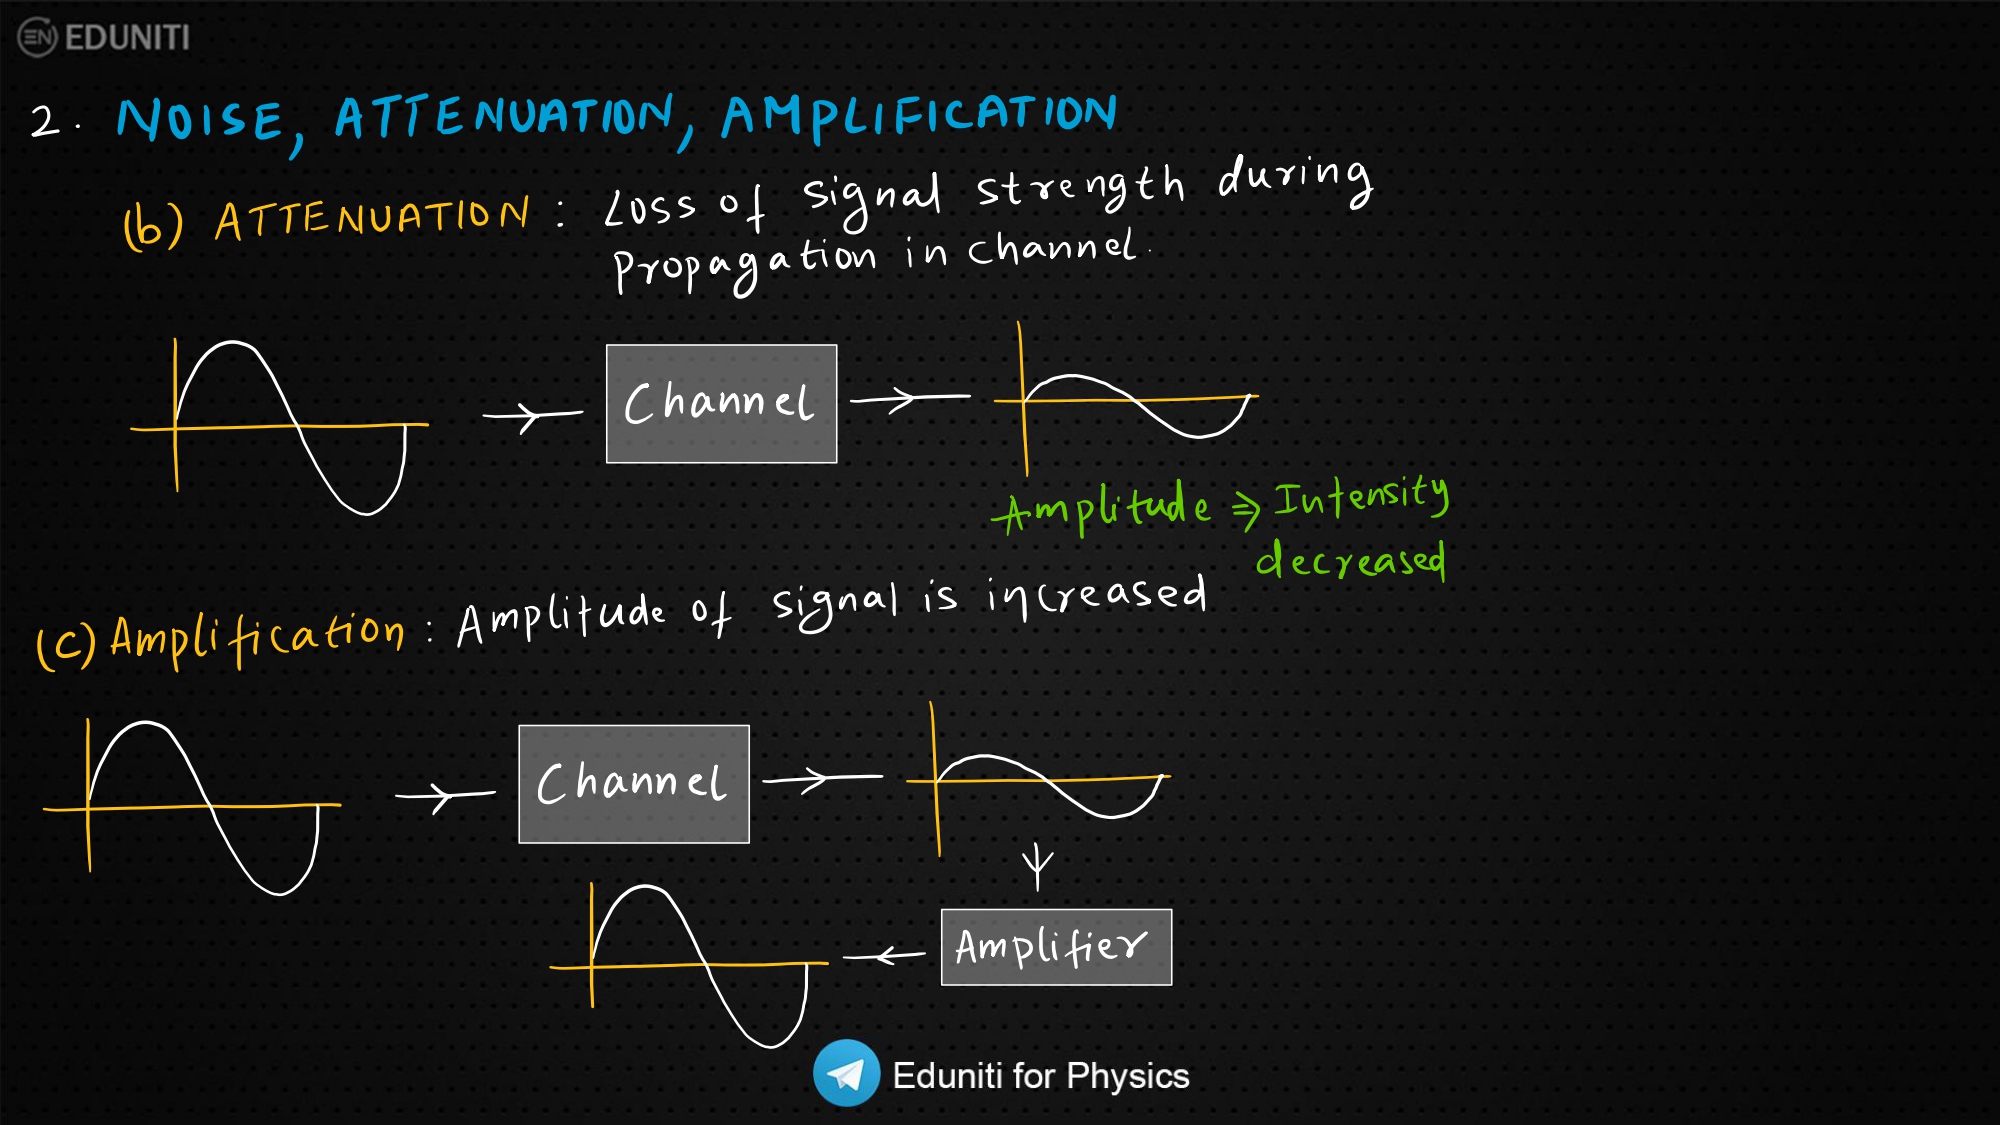 EN EDUNITI
2. NOISE, ATTENUATION, AMPLIFICATION
(b) ATTENUATION : Loss of signal strength during
Propagation in channel.
Channel
Amplitude ⇒ Intensity
decreased
(c) Amplification : Amplitude of signal is increased
Channel
Amplifier
Eduniti for Physics